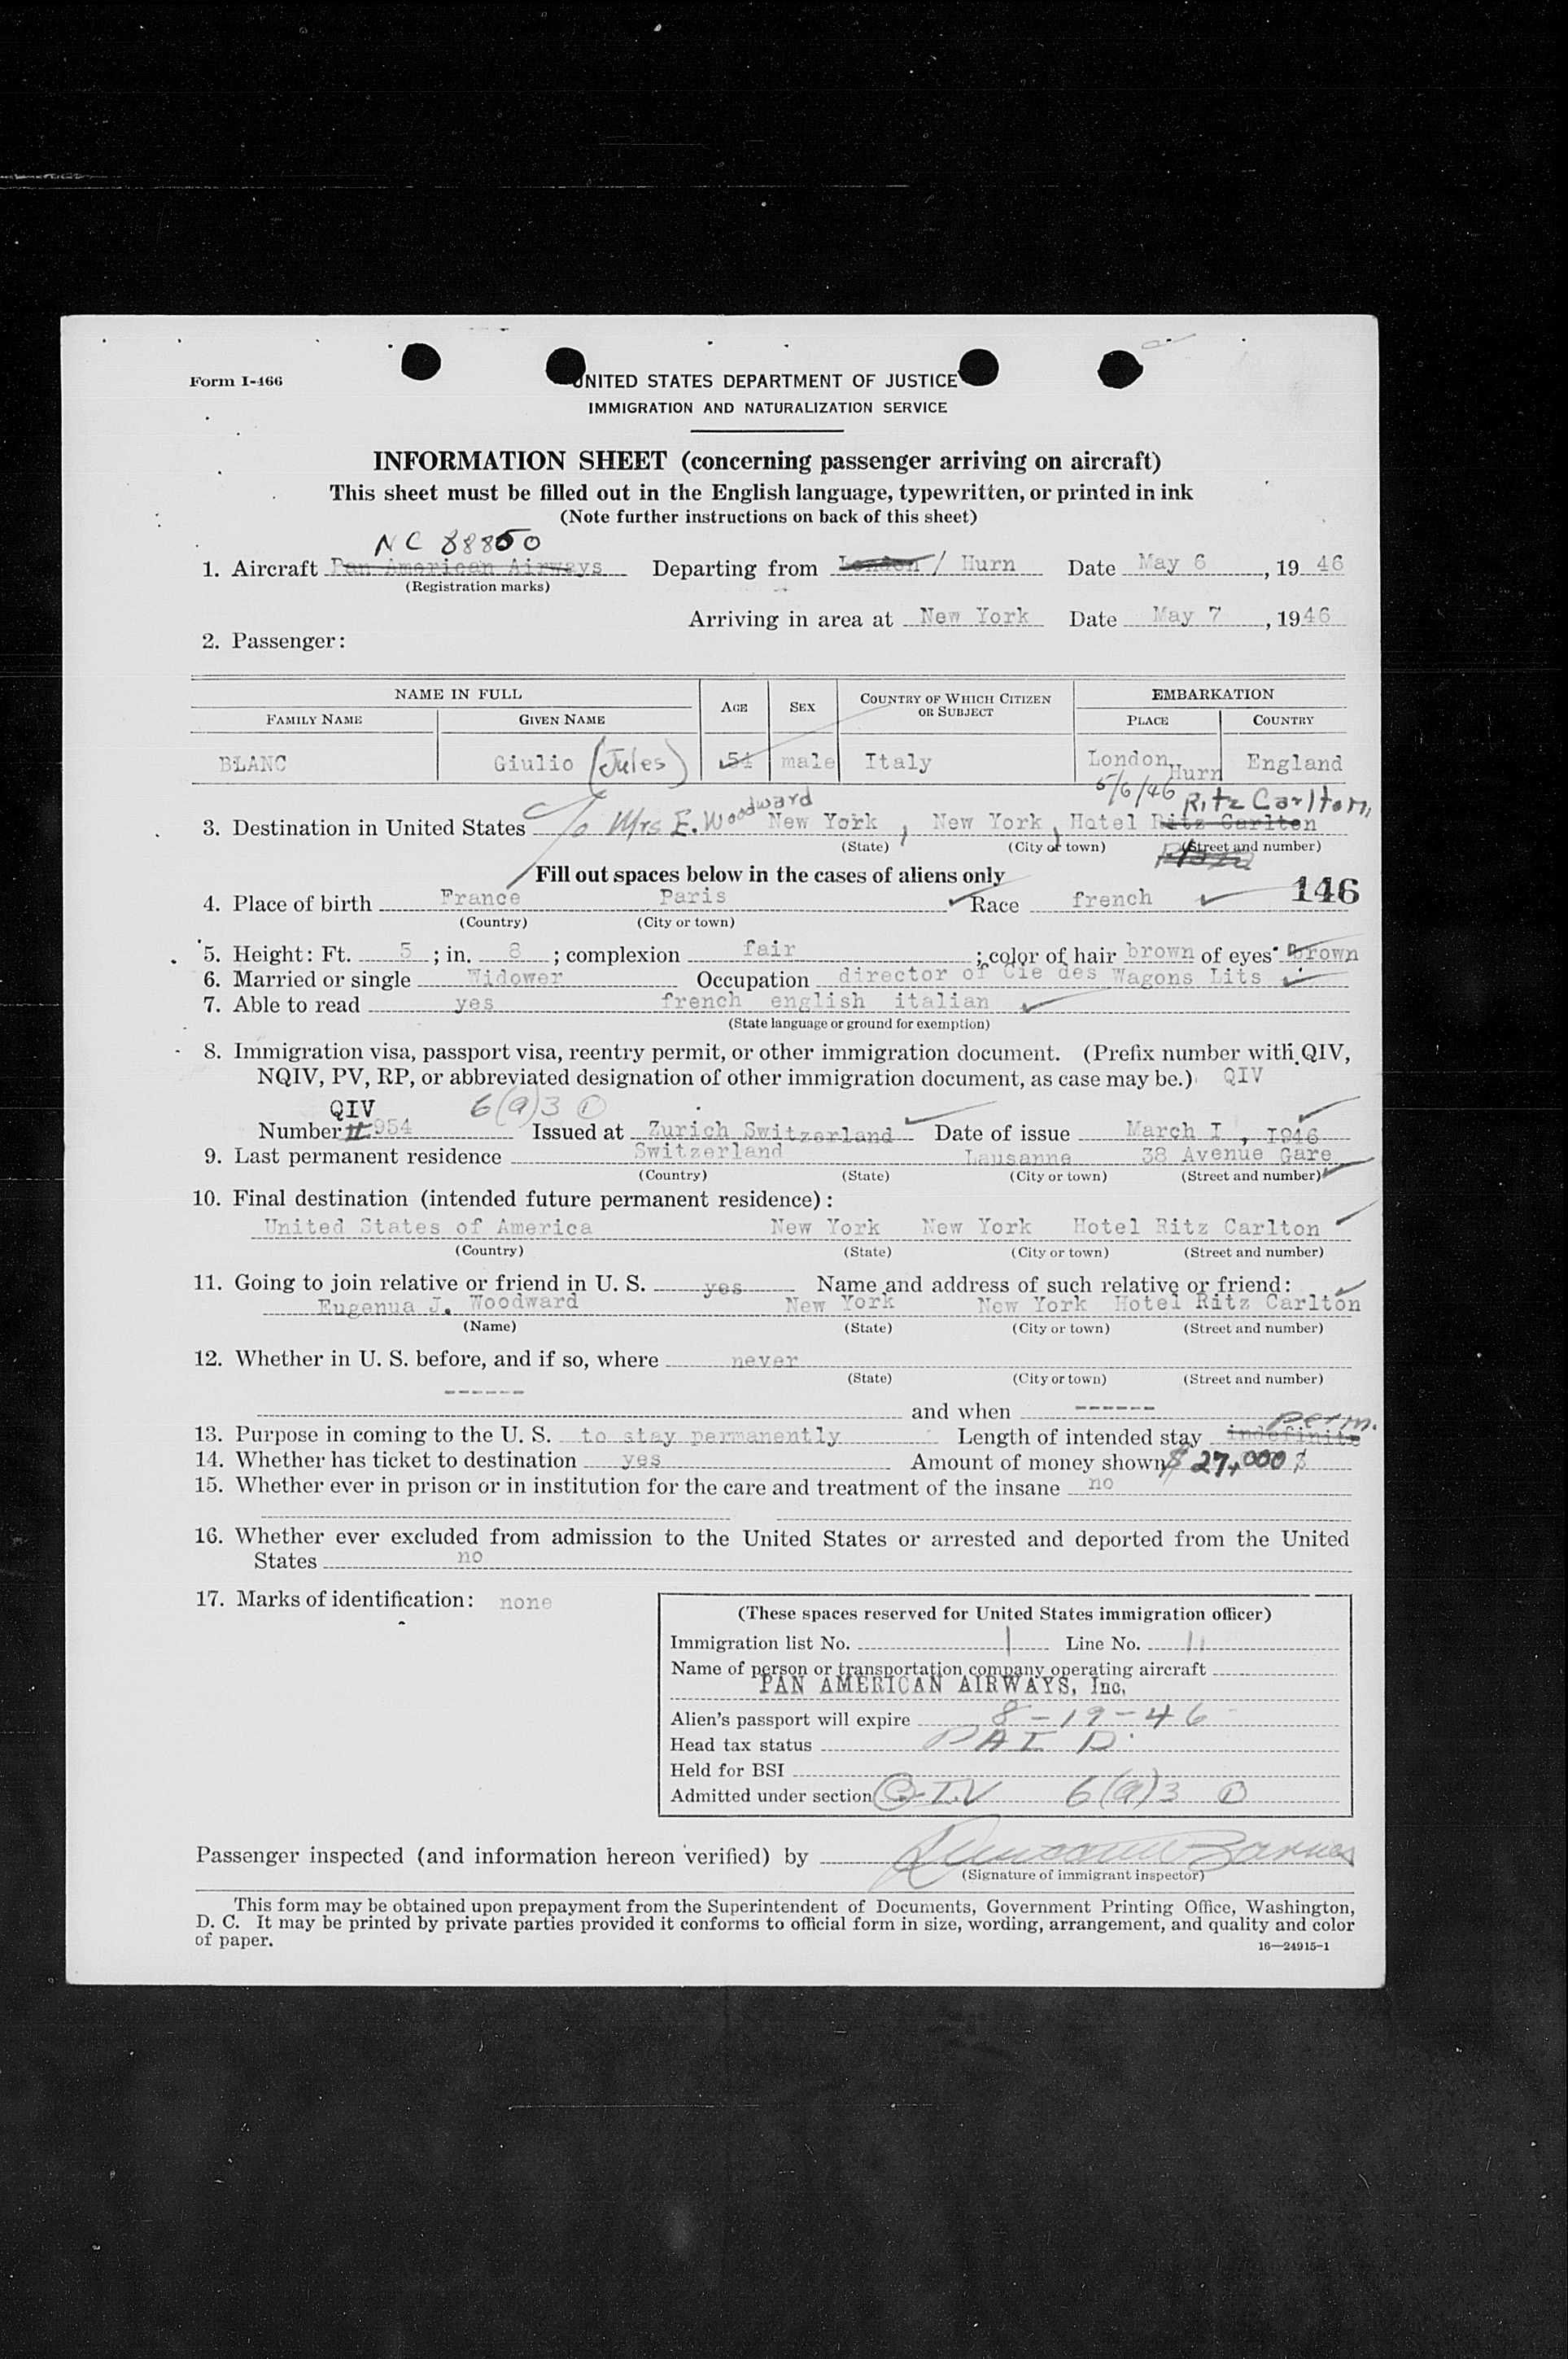 Form I-466
UNITED STATES DEPARTMENT OF JUSTICE
IMMIGRATION AND NATURALIZATION SERVICE
INFORMATION SHEET (concerning passenger arriving on aircraft)
This sheet must be filled out in the English language, typewritten, or printed in ink
(Note further instructions on back of this sheet)
NC 88850
1. Aircraft Pan American Airways Departing from London / Hurn Date May 6, 1946
(Registration marks)
Arriving in area at New York Date May 7, 1946
2. Passenger:
NAME IN FULL AGE SEX COUNTRY OF WHICH CITIZEN OR SUBJECT EMBARKATION
FAMILY NAME GIVEN NAME PLACE COUNTRY
BLANC Giulio (Jules) 54 male Italy London, Hurn England
5/6/46 Ritz Carlton,
3. Destination in United States c/o Mrs E. Woodward New York, New York, Hotel Ritz Carlton
(State) (City or town) (Street and number)
Fill out spaces below in the cases of aliens only
146
4. Place of birth France Paris Race french
(Country) (City or town)
5. Height: Ft. 5; in. 8; complexion fair; color of hair brown of eyes brown
6. Married or single Widower Occupation director of Cie des Wagons Lits
7. Able to read yes french english italian
(State language or ground for exemption)
8. Immigration visa, passport visa, reentry permit, or other immigration document. (Prefix number with QIV,
NQIV, PV, RP, or abbreviated designation of other immigration document, as case may be.) QIV
QIV 6(a)3 ①
Number # 954 Issued at Zurich Switzerland Date of issue March I, I946
9. Last permanent residence Switzerland Lausanne 38 Avenue Gare
(Country) (State) (City or town) (Street and number)
10. Final destination (intended future permanent residence):
United States of America New York New York Hotel Ritz Carlton
(Country) (State) (City or town) (Street and number)
11. Going to join relative or friend in U. S. yes Name and address of such relative or friend:
Eugenua J. Woodward New York New York Hotel Ritz Carlton
(Name) (State) (City or town) (Street and number)
12. Whether in U. S. before, and if so, where never
(State) (City or town) (Street and number)
------ and when ------
perm.
13. Purpose in coming to the U. S. to stay permanently Length of intended stay indefinite
14. Whether has ticket to destination yes Amount of money shown $ 27,000 $
15. Whether ever in prison or in institution for the care and treatment of the insane no
16. Whether ever excluded from admission to the United States or arrested and deported from the United
States no
17. Marks of identification: none
(These spaces reserved for United States immigration officer)
Immigration list No. 1 Line No. 11
Name of person or transportation company operating aircraft
PAN AMERICAN AIRWAYS, Inc.
Alien's passport will expire 8-19-46
Head tax status PAID
Held for BSI
Admitted under section Q.I.V 6(a)3 ①
Passenger inspected (and information hereon verified) by
(Signature of immigrant inspector)
This form may be obtained upon prepayment from the Superintendent of Documents, Government Printing Office, Washington,
D. C. It may be printed by private parties provided it conforms to official form in size, wording, arrangement, and quality and color
of paper.
16—24915-1